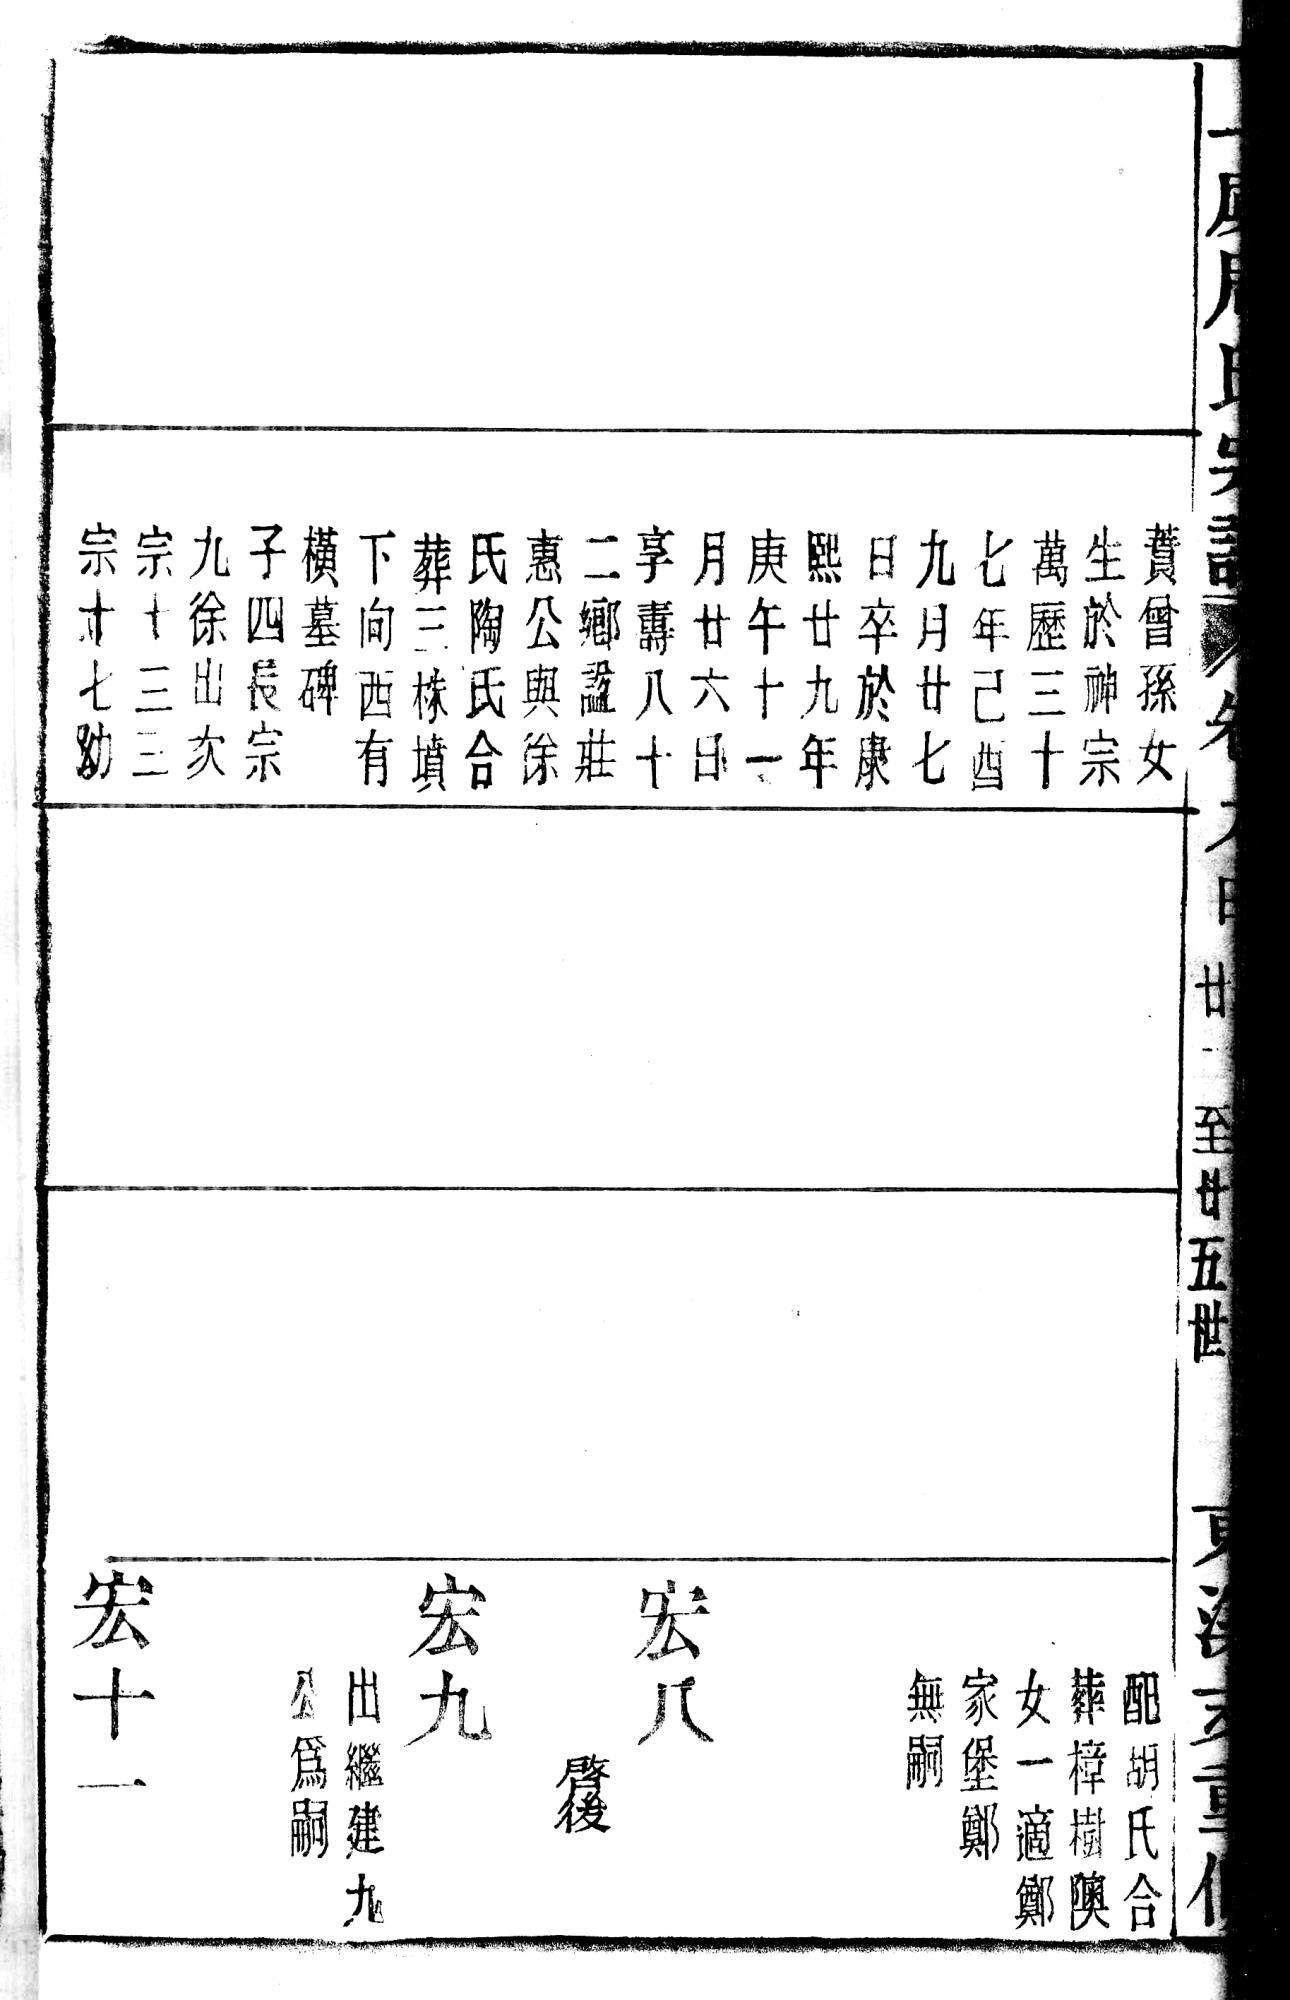 周氏宗譜
卷
廿
至廿五世
重修
蕢曾孫女
生於神宗
萬歷三十
七年己酉
九月廿七
日卒於康
熙廿九年
庚午十一
月廿六日
享壽八十
二鄉諡莊
惠公與徐
氏陶氏合
葬三株墳
下向西有
橫墓碑
子四長宗
九徐出次
宗十三三
宗十七幼
配胡氏合
葬樟樹隩
女一適鄭
家堡鄭
無嗣
宏八
啓後
宏九
出繼建九
公爲嗣
宏十一